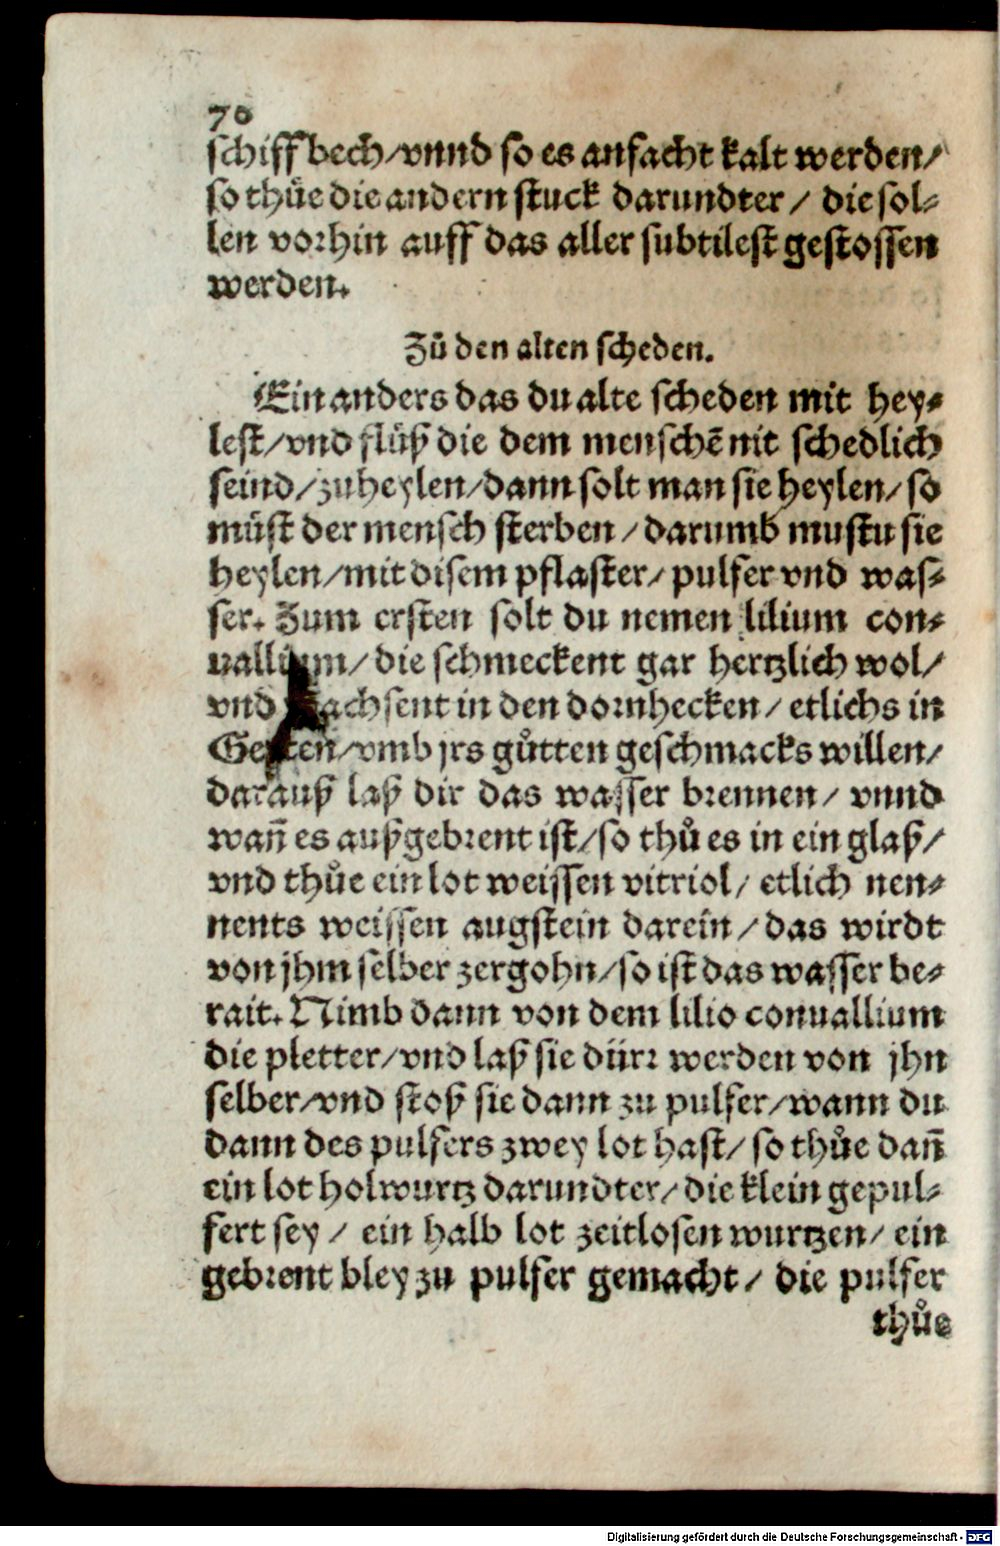 70
schiffbech/vnnd so es anfacht kalt werden/
so thuͤe die andern stuck darundter/ die sol⸗
len vorhin auff das aller subtilest gestossen
werden.
Zuͦ den alten scheden.
Ein anders das du alte scheden mit hey⸗
lest/vnd fluͤß die dem menschẽ nit schedlich
seind/zu heylen/dann solt man sie heylen/so
muͤst der mensch sterben/darumb mustu sie
heylen/mit disem pflaster/pulfer vnd was⸗
ser. Zum ersten solt du nemen lilium con⸗
uallium/die schmeckent gar hertzlich wol/
vnd wachsent in den dornhecken/etlichs in
Gerten/vmb jrs guͦtten geschmacks willen/
darauß laß dir das wasser brennen/ vnnd
wañ es außgebrent ist/so thuͦ es in ein glaß/
vnd thuͦe ein lot weissen vitriol/ etlich nen⸗
nents weissen augstein darein/das wirdt
von jhm selber zergohn/so ist das wasser be⸗
rait. Nimb dann von dem lilio conuallium
die pletter/vnd laß sie dürr werden von jhn
selber/vnd stoß sie dann zu pulfer/wann du
dann des pulfers zwey lot hast/ so thuͦe dañ
ein lot holwurtz darundter/die klein gepul⸗
fert sey/ ein halb lot zeitlosen wurtzen/ ein
gebrent bley zu pulfer gemacht/ die pulfer
thuͦe
Digitalisierung gefördert durch die Deutsche Forschungsgemeinschaft - DFG